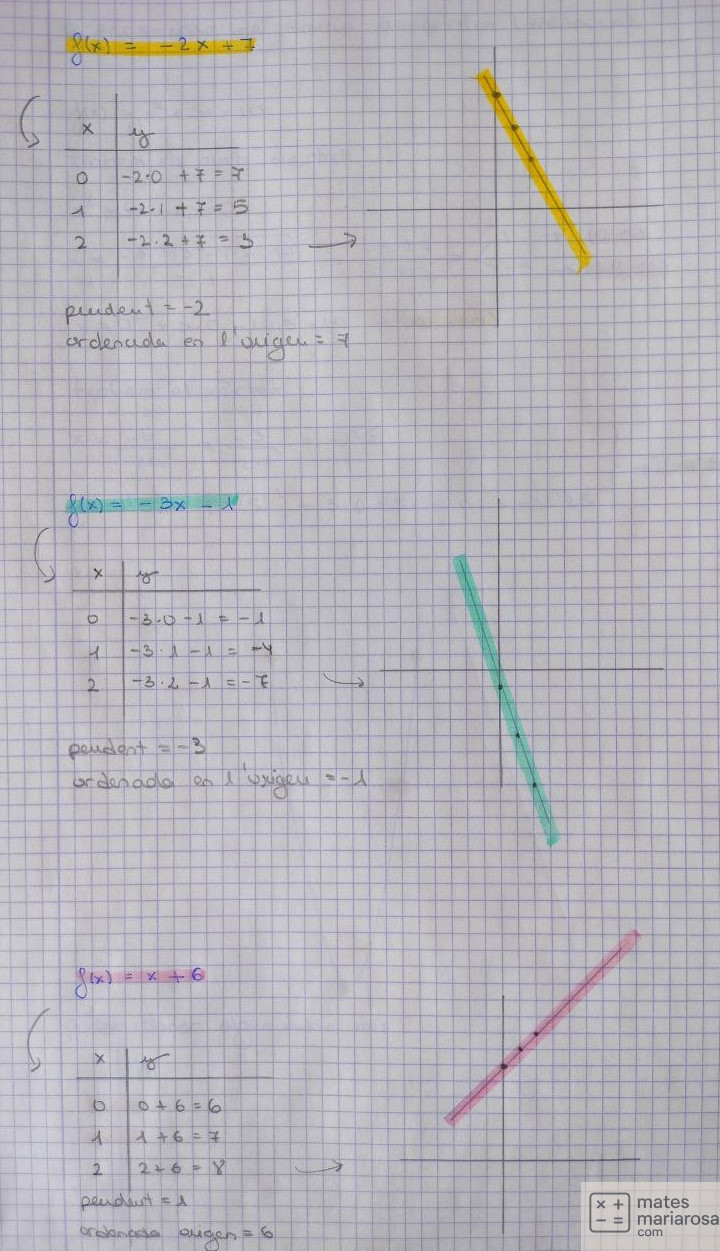 f(x) = -2x + 7
x y
0 -2·0 + 7 = 7
1 -2·1 + 7 = 5
2 -2·2 + 7 = 3
pendent = -2
ordenada en l'origen = 7
f(x) = -3x - 1
x y
0 -3·0 - 1 = -1
1 -3·1 - 1 = -4
2 -3·2 - 1 = -7
pendent = -3
ordenada en l'origen = -1
f(x) = x + 6
x y
0 0 + 6 = 6
1 1 + 6 = 7
2 2 + 6 = 8
pendent = 1
ordenada origen = 6
x + mates
- = mariarosa
com